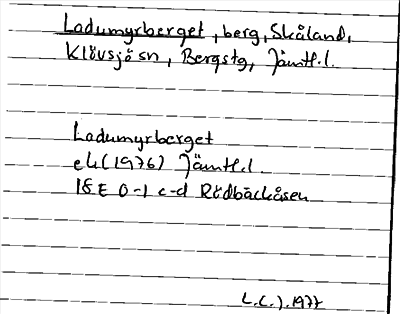 Ladumyrberget, berg, Skåland,
Klövsjö sn, Bergstg, Jämtl.l.
Ladumyrberget
ek (1976) Jämtl.l
18E 0-1 c-d Rödbäckåsen
L.L.J. 1977